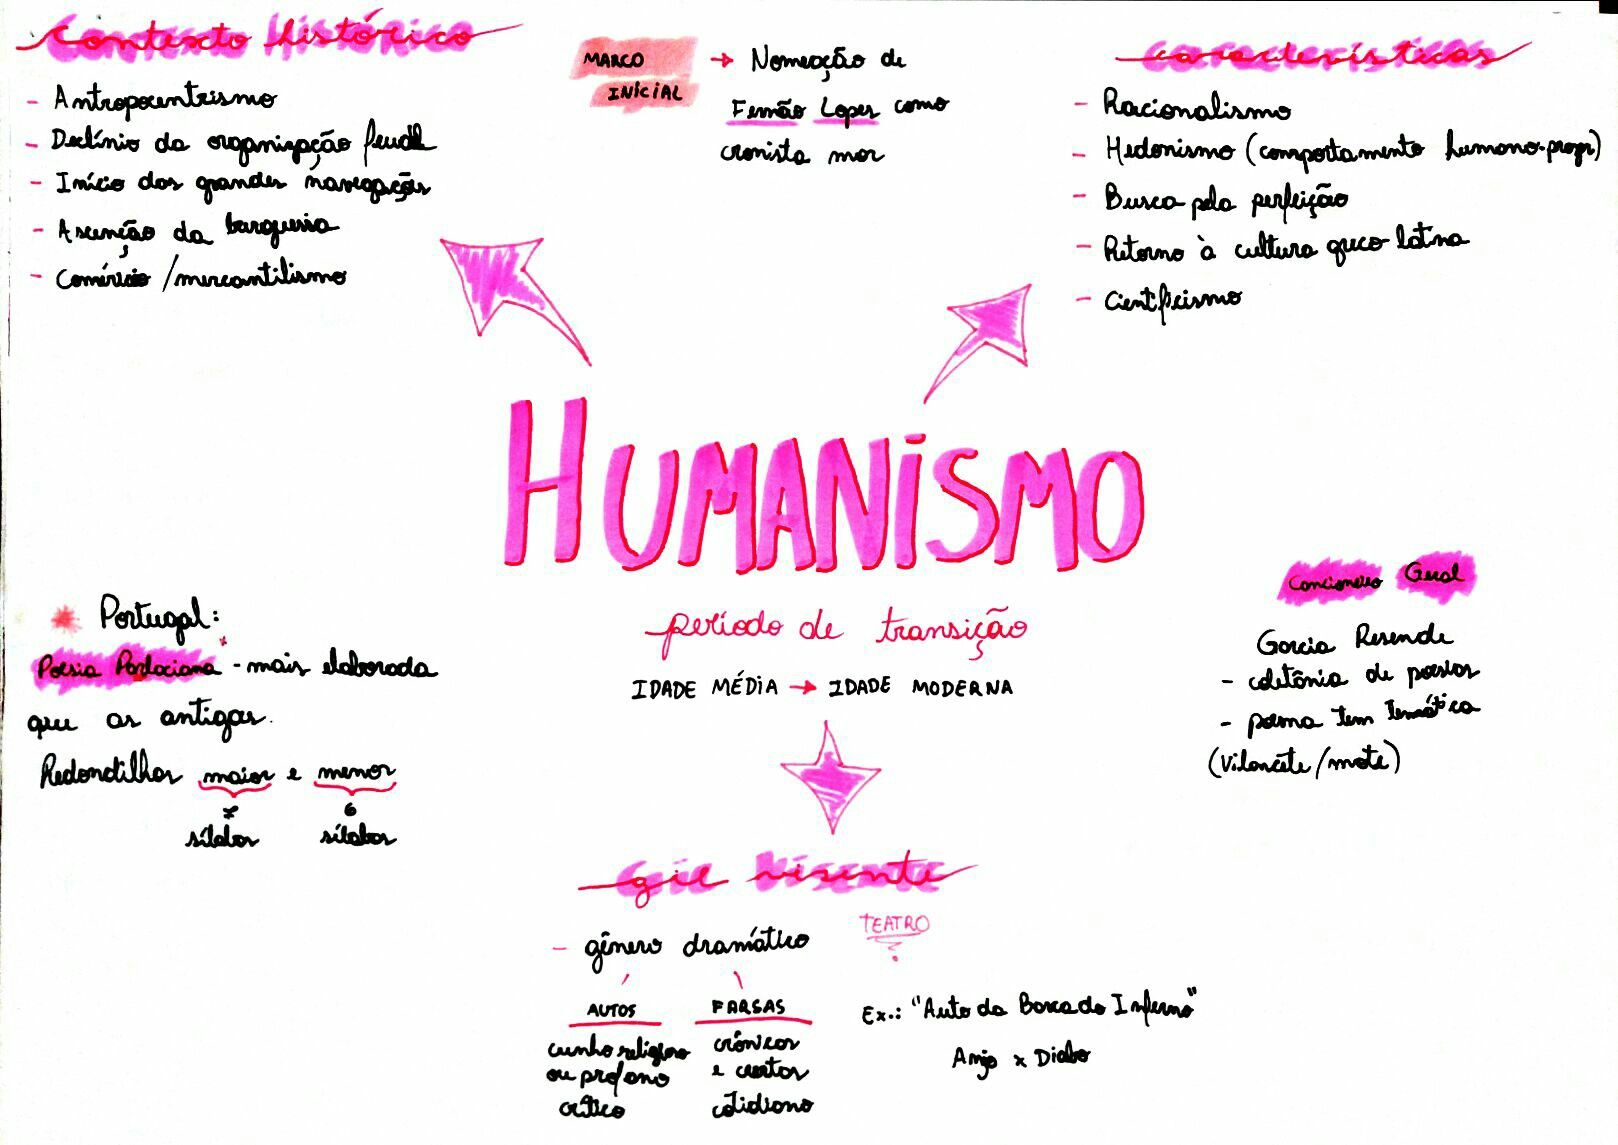 Contexto histórico
- Antropocentrismo
- Declínio da organização feudl
- Início das grandes navegações
- Ascenção da burguesia
- Comércio / mercantilismo
MARCO INICIAL → Nomeação de
Fernão Lopes como
cronista mor
características
- Racionalismo
- Hedonismo (comportamento humano-
- Busca pela perfeição
- Retorno à cultura greco-latina
- Cientificismo
HUMANISMO
período de transição
IDADE MÉDIA → IDADE MODERNA
* Portugal:
Poesia Palaciana - mais elaborada
que as antigas.
Redondilhas maior e menor
7 sílabas
6 sílabas
Cancioneiro Geral
Garcia Resende
- coletânia de poesias
- poema tem temática
(Vilancete/mote)
gil visente
TEATRO
- gênero dramático
AUTOS
cunho religioso
ou profano
crítico
FARSAS
crônicas
e curtas
cotidiano
Ex.: "Auto da Barca do Inferno"
Anjo x Diabo